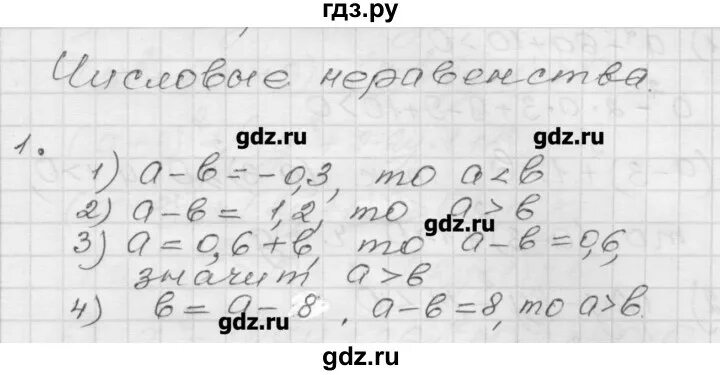 гдз.ру
Числовые неравенства.
1.
gdz.ru
gdz.ru
1) a-b=-0,3, то a<b
2) a-b= 1,2, то a>b
gdz.ru
3) a=0,6+b, то a-b=0,6,
значит a>b
4) b= a-8, a-b=8, то a>b.
gdz.ru
gdz.ru